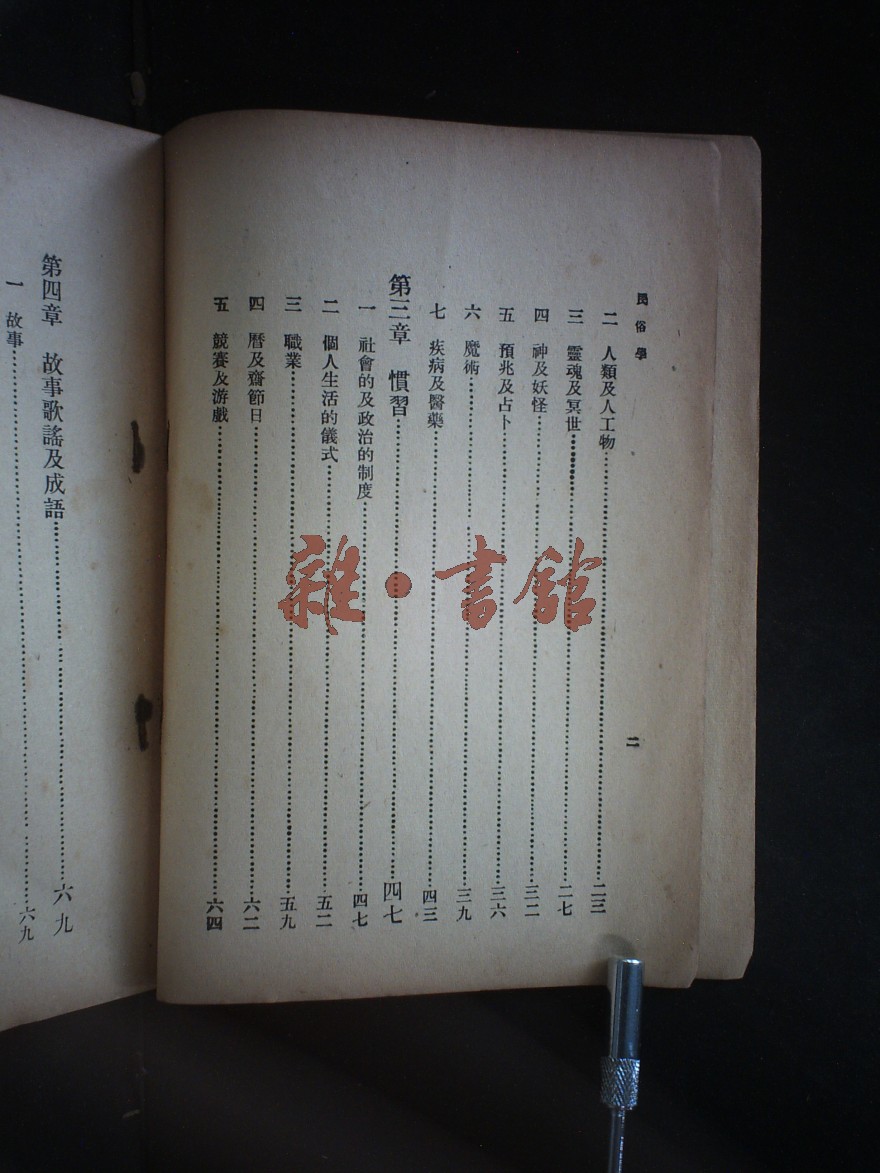 民俗學
二
二　人類及人工物⋯⋯二三
三　靈魂及冥世⋯⋯二七
四　神及妖怪⋯⋯三二
五　預兆及占卜⋯⋯三六
六　魔術⋯⋯三九
七　疾病及醫藥⋯⋯四三
第三章　慣習⋯⋯四七
一　社會的及政治的制度⋯⋯四七
二　個人生活的儀式⋯⋯五二
三　職業⋯⋯五九
四　曆及齋節日⋯⋯六二
五　競賽及游戲⋯⋯六四
第四章　故事歌謠及成語⋯⋯六九
一　故事⋯⋯六九
雜·書館